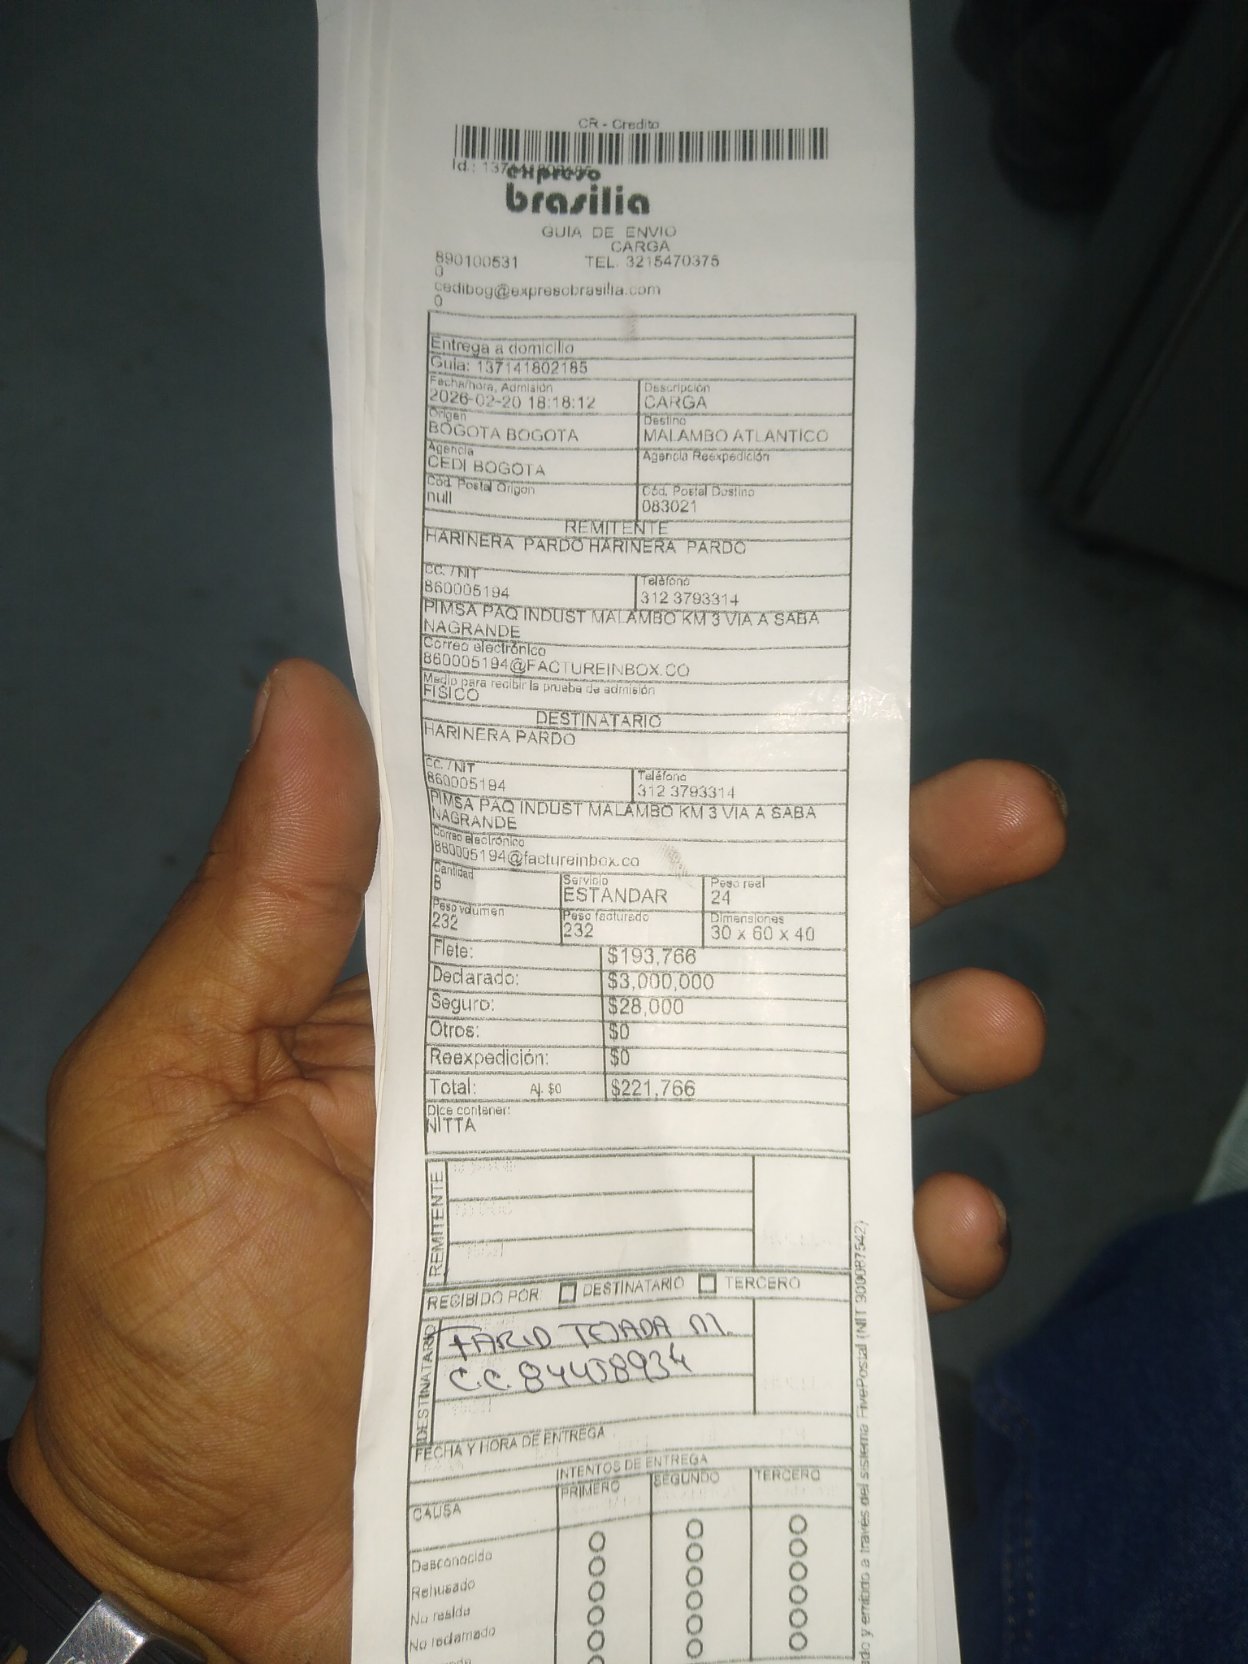 CR - Credito
Id.: 137141802185
expreso
brasilia
GUIA DE ENVIO
CARGA
890100531 TEL. 3215470375
0
cedibog@expresobrasilia.com
0
Entrega a domicilio
Guia: 137141802185
Fecha/hora, Admisión Descripción
2026-02-20 18:18:12 CARGA
Origen Destino
BOGOTA BOGOTA MALAMBO ATLANTICO
Agencia Agencia Reexpedición
CEDI BOGOTA
Cód. Postal Origen Cód. Postal Destino
null 083021
REMITENTE
HARINERA PARDO HARINERA PARDO
CC. / NIT Teléfono
860005194 312 3793314
PIMSA PAQ INDUST MALAMBO KM 3 VIA A SABA
NAGRANDE
Correo electrónico
860005194@FACTUREINBOX.CO
Medio para recibir la prueba de admisión
FISICO
DESTINATARIO
HARINERA PARDO
CC. / NIT Teléfono
860005194 312 3793314
PIMSA PAQ INDUST MALAMBO KM 3 VIA A SABA
NAGRANDE
Correo electrónico
860005194@factureinbox.co
Cantidad Servicio Peso real
8 ESTANDAR 24
Peso volumen Peso facturado Dimensiones
232 232 30 x 60 x 40
Flete: $193,766
Declarado: $3,000,000
Seguro: $28,000
Otros: $0
Reexpedición: $0
Total: Aj. $0 $221,766
Dice contener:
NITTA
REMITENTE
RECIBIDO POR DESTINATARIO TERCERO
DESTINATARIO
FARID TEJADA M.
C.C. 84458934
FECHA Y HORA DE ENTREGA
INTENTOS DE ENTREGA
CAUSA PRIMERO SEGUNDO TERCERO
Desconocido
Rehusado
No reside
No reclamado
do y emitido a través del sistema FivePostal (NIT 900087542)